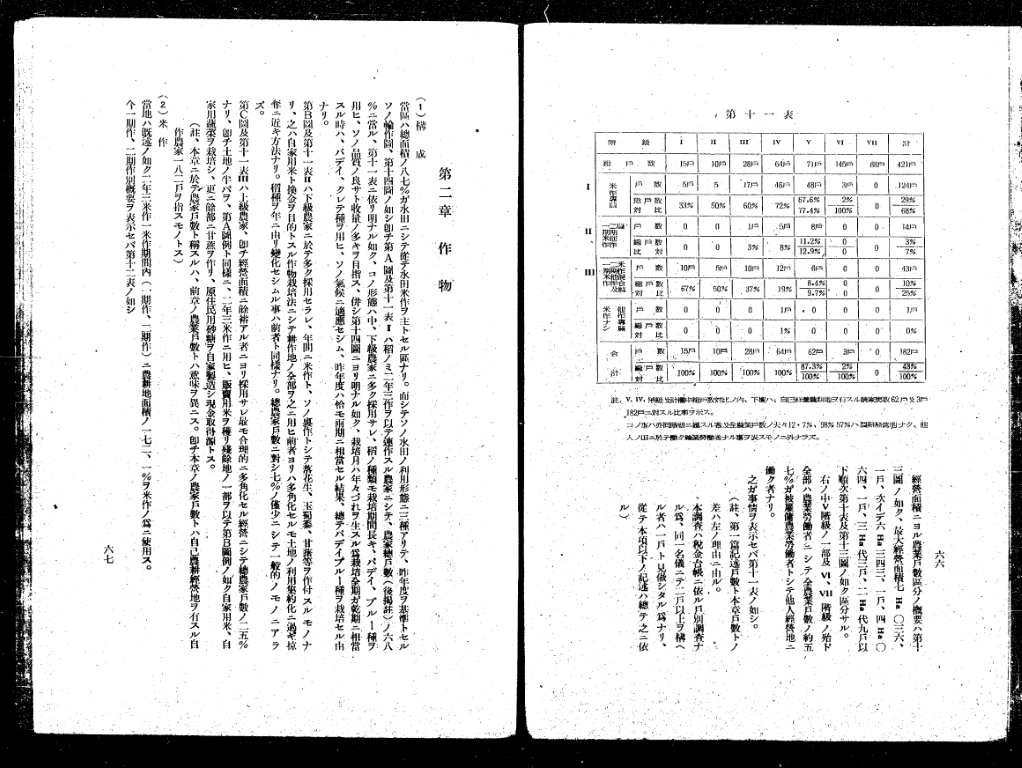 第十一表
階級 I II III IV V VI VII 計
總戶數 15戶 10戶 28戶 64戶 71戶 145戶 88戶 421戶
I 米作專區 戶數 5戶 5 17戶 46戶 48戶 3戶 0 124戶
總戶數對比 33% 50% 60% 72% 67.6% 77.4% 2% 100% 0 29% 68%
II 戶數 0 0 1戶 5戶 8戶 0 0 14戶
總戶數對比 0 0 3% 8% 11.2% 12.9% 0 0 3% 7%
III 戶數 10戶 5戶 10戶 12戶 6戶 0 0 43戶
總戶數對比 67% 50% 37% 19% 8.4% 9.7% 0 0 10% 25%
米作ナシ 戶數 0 0 0 1戶 0 0 0 1戶
總戶數對比 0 0 0 1% 0 0 0 0%
合計 戶數 15戶 10戶 28戶 64戶 62戶 3戶 0 182戶
總戶數對比 100% 100% 100% 100% 87.3% 100% 2% 100% 0 43% 100%
182戶ニ對スル比率ヲ示ス。
人ノ田ニ於テ働ク農業勞働者ナル事ヲ表スモノニ外ナラズ。
經營面積ニヨル農業戶數區分ノ概要ハ第十
三圖ノ如ク、最大經營面積七 Ha 〇三六、
一戶、次イデ六 Ha 三四三、一戶、四 Ha 〇
六四、一戶、三 Ha 代三戶、二 Ha 代九戶以
下順次第十表及第十三圖ノ如ク區分サル。
右ノ中V階級ノ一部及 VI、VII 階級ノ殆ド
全部ハ農業勞働者ニシテ全農業戶數ノ約五
七%ガ被雇傭農業勞働者トシテ他人經營地ニ
働ク者ナリ。
之ガ事情ヲ表示セバ第十一表ノ如シ。
(註、第一篇記述戶數ト本章戶數トノ
差ハ左ノ理由ニ由ル。
本調査ハ稅金台帳ニ依ル戶別調査ナ
ル爲、同一名儀ニテ二戶以上ヲ構ヘ
ル者ハ一戶ト見做シタル爲ナリ、
從テ本項以下ノ記述ハ總テ之ニ依
ル)
六六
第二章 作物
(1) 構成
當區ハ總面積ノ八七%ガ水田ニシテ從テ水田米作ヲ主トセル區ナリ。而シテソノ水田ノ利用形態ニ三種アリテ、昨年度ヲ基準トセル
ソノ輪作圖、第十四圖ノ如シ卽チ第A圖及第十一表 I ハ稻ノミ二年三作ヲ以テ連作スル農家ニシテ、農家總戶數(後揭註)ノ六八
%ニ當ル、第十一表ニ依リ明ナル如ク、コノ形態ハ中、下級農家ニ多ク採用サレ、稻ノ種類モ栽培期間長キ、パデイ、ブルー種ヲ
用ヒ、ソノ品質ノ良サト收量ノ多キヲ目指ス、併シ第十四圖ニヨリ明ナル如ク、栽培月ハ年々づれヲ生スル爲栽培全期ガ乾期ニ相當
スル時ハ、パデイ、クレテ種ヲ用ヒ、ソノ氣候ニ適應セシム、昨年度ハ恰モ雨期ニ相當セル結果、總テパデイブルー種ヲ栽培セル由
ナリ。
第B圖及第十一表IIハ下級農家ニ於テ多ク採用セラレ、年間ニ米作ト、ソノ裏作トシテ落花生、玉蜀黍、甘藷等ヲ作付スルモノナ
リ、之ハ自家用米ト換金ヲ目的トスル作物栽培法ニシテ耕作地ノ全部ヲ之ニ用ヒ前者ヨリハ多角化セルモ土地ノ利用集約化ニ過ギ掠
奪ニ近キ方法ナリ。稻種ヲ年ニ由リ變化セシムル事ハ前者ト同樣ナリ。總農家戶數ニ對シ七%ノ僅少ニシテ一般的ノモノニアラ
ズ。
第C圖及第十一表IIIハ上級農家、卽チ經營面積ニ餘裕アル者ニヨリ採用サレ最モ合理的ニ多角化セル經營ニシテ總農家戶數ノ二五%
ナリ、卽チ土地ノ半バヲ、第A圖例ト同樣ニ、二年三米作ニ用ヒ、販賣用米ヲ穫リ殘餘地ノ一部ヲ以テ第B圖例ノ如ク自家用米、自
家用蔬菜ヲ栽培シ、更ニ餘部ニ甘蔗ヲ作リ、原住民用砂糖ヲ自家製造シ現金取得源トス。
(註、本章ニ於テ農家戶數ト稱スルハ、前章ノ農業戶數トハ意味ヲ異ニス。卽チ本章ノ農家戶數トハ自己農耕經營地ヲ有スル自
作農家一八二戶ヲ指スモノトス)
(2) 米作
當地ハ既述ノ如ク二年三米作一米作期間內(一期作、二期作)ニ農耕地面積ノ一七二、一%ヲ米作ノ爲ニ使用ス。
今一期作、二期作別概要ヲ表示セバ第十二表ノ如シ
六七